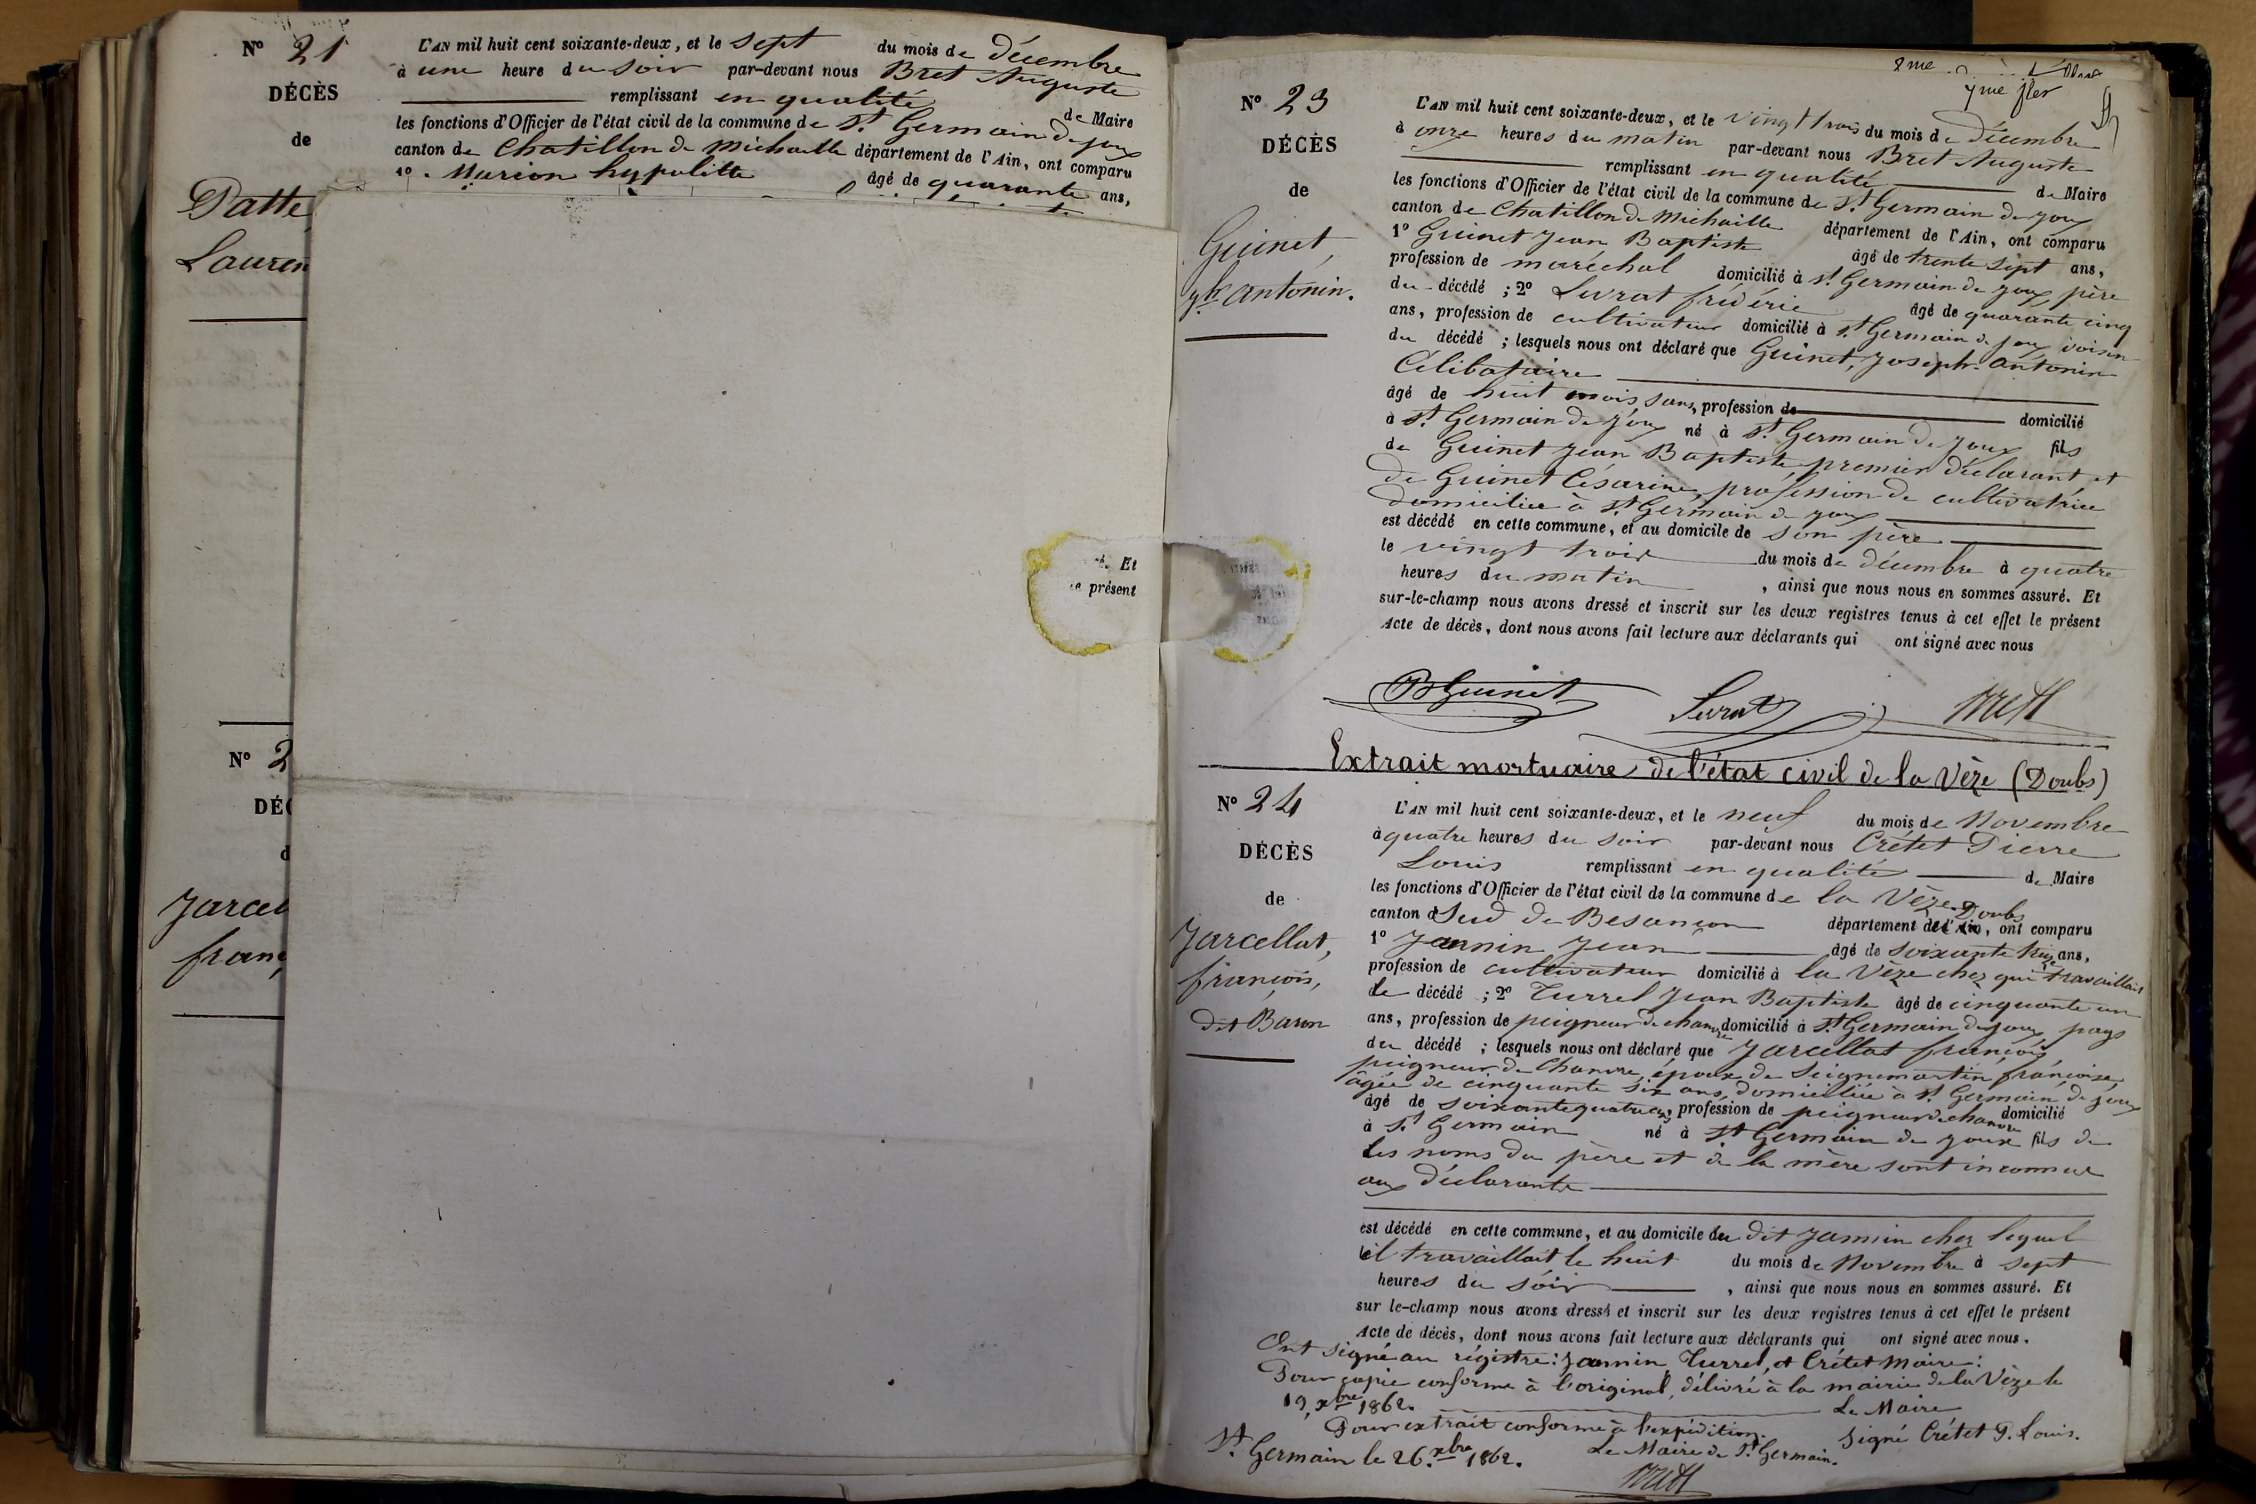 N° 21
DÉCÈS
de
Patte
Lauren
L'AN mil huit cent soixante-deux, et le sept du mois de décembre
à une heure du soir par-devant nous Bret Auguste
remplissant en qualité de Maire
les fonctions d'Officier de l'état civil de la commune de St Germain de joux
canton de Chatillon de michaille département de l'Ain, ont comparu
1° Marion hypolitte âgé de quarante ans,
. Et
le présent
N° 2
DÉC
d
Jarcel
franç
2me
7me fler
N° 23
DÉCÈS
de
Guinet,
ph antonin.
L'AN mil huit cent soixante-deux, et le vingt trois du mois de décembre
à onze heures du matin par-devant nous Bret Auguste
remplissant en qualité de Maire
les fonctions d'Officier de l'état civil de la commune de St Germain de joux
canton de Chatillon de Michaille département de l'Ain, ont comparu
1° Guinet Jean Baptiste âgé de trente sept ans,
profession de maréchal domicilié à St Germain de joux, père
du décédé ; 2° Livrat frédéric âgé de quarante cinq
ans, profession de cultivateur domicilié à St Germain de joux voisin
du décédé ; lesquels nous ont déclaré que Guinet, Joseph antonin
Célibataire
âgé de huit mois sans, profession de domicilié
à St Germain de joux né à St Germain de joux fils
de Guinet Jean Baptiste premier déclarant, et
de Guinet Césarine, profession de cultivatrice
domiciliée à St Germain de joux
est décédé en cette commune, et au domicile de son père
le vingt trois du mois de décembre à quatre
heures du matin , ainsi que nous nous en sommes assuré. Et
sur-le-champ nous avons dressé et inscrit sur les deux registres tenus à cet effet le présent
Acte de décès, dont nous avons fait lecture aux déclarants qui ont signé avec nous
B Guinet Livrat Bret
Extrait mortuaire de l'état civil de la Vèze (Doubs)
N° 24
DÉCÈS
de
Jarcellat,
françois,
dit Baron
L'AN mil huit cent soixante-deux, et le neuf du mois de Novembre
à quatre heures du soir par-devant nous Crétet Pierre
Louis remplissant en qualité de Maire
les fonctions d'Officier de l'état civil de la commune de la Vèze
canton Sud de Besançon département de l'Ain Doubs, ont comparu
1° Jannin Jean âgé de soixante treize ans,
profession de cultivateur domicilié à la Vèze chez qui travaillait
le décédé ; 2° Turrel Jean Baptiste âgé de cinquante un
ans, profession de peigneur de chanvre domicilié à St Germain de joux pays
du décédé ; lesquels nous ont déclaré que Jarcellat françois
peigneur de Chanvre, époux de Seignemartin françoise
âgée de cinquante six ans, domiciliée à St Germain de joux
âgé de soixante quatre ans, profession de peigneur de chanvre domicilié
à St Germain né à St Germain de joux fils de
les noms du père et de la mère sont inconnus
aux déclarants
est décédé en cette commune, et au domicile du dit Jannin chez lequel
il travaillait le huit du mois de Novembre à sept
heures du soir , ainsi que nous nous en sommes assuré. Et
sur le-champ nous avons dressé et inscrit sur les deux registres tenus à cet effet le présent
Acte de décès, dont nous avons fait lecture aux déclarants qui ont signé avec nous.
Ont signé au régistre: Jannin, Turrel, et Crétet Maire:
Pour copie conforme à l'original, délivré à la mairie de la Vèze le
19, xbre 1862. Le Maire
Pour extrait conforme à l'expédition. Signé Crétet P. Louis.
St Germain le 26 xbre 1862. Le Maire de St Germain.
Bret